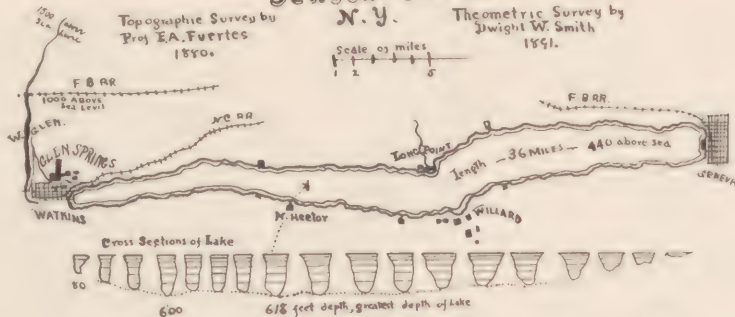 N.Y.
Topographic Survey by
Prof E.A. Fuertes
1880.
Theometric Survey by
Dwight W. Smith
1891.
Scale of miles
1 2 5
1500
F B RR
1000 Above
Sea Level
W. GLEN.
GLEN SPRINGS
N C RR
LONG POINT
F B RR.
length - 36 MILES - 440 above sea
GENEVA
WATKINS
N. Hector
WILLARD
Cross Sections of Lake
80
600
618 feet depth, greatest depth of Lake